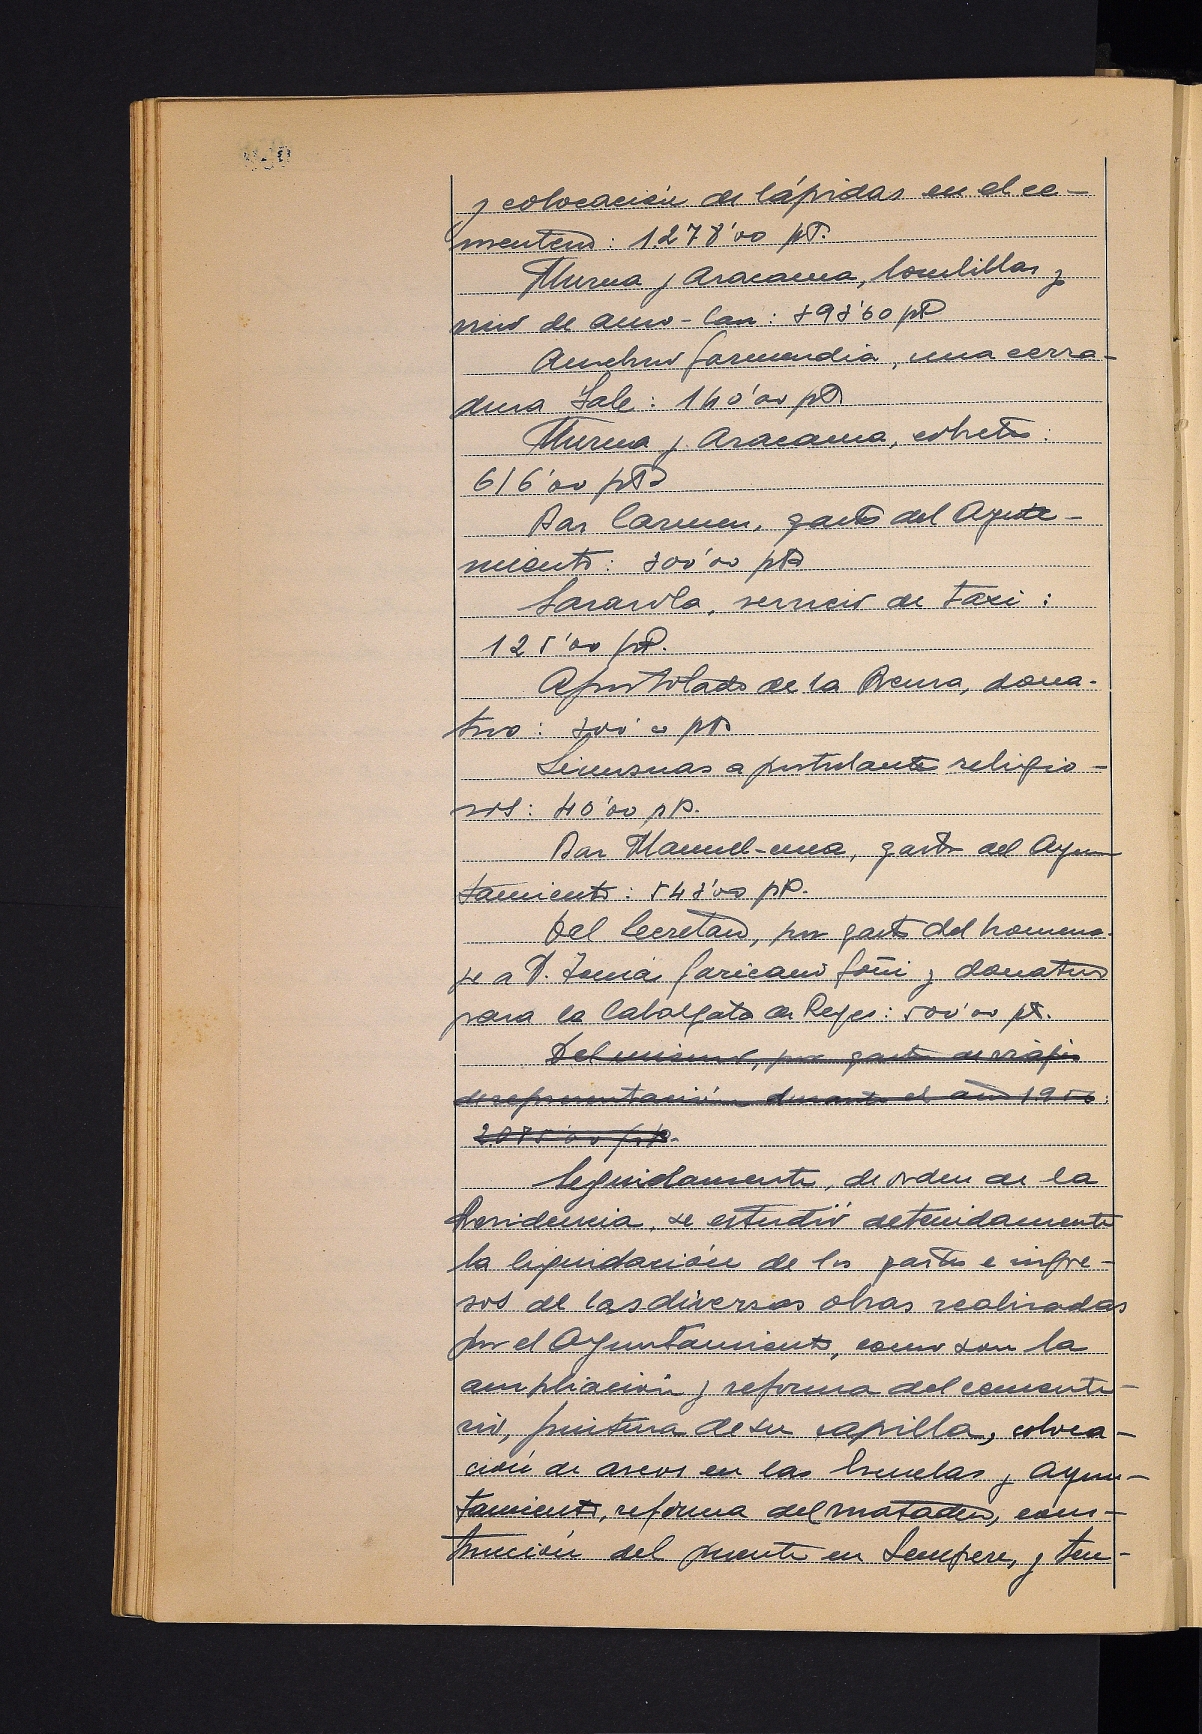 y colocación de lápidas en el ce-
menterio: 1278'00 pts.
Murua y Aracama, bombillas y
de : 393'60 pts
Garmendia, una cerra-
dura Sale: 140'00 pts
Murua y Aracama, cohetes:
616'00 pts
Bar Carmen, gastos del Ayunta-
miento: 300'00 pts
servicio de taxi:
125'00 pts.
Apostolado de la Prensa, dona-
tivo: 300'00 pts
Limosnas a postulantes religio-
sos: 40'00 pts.
Bar Manuel-enea, gastos del Ayun
tamiento: 543'00 pts.
Del Secretario, por gastos del homena-
je a D. Tomás Garicano Goñi y donativo
para la Cabalgata de Reyes: 500'00 pts.
Del mismo, por gastos de viajes
de representación durante el año 1956:
2.075'00 pts.
Seguidamente, de orden de la
Presidencia, se estudió detenidamente
la liquidación de los gastos e ingre-
sos de las diversas obras realizadas
por el Ayuntamiento, como son la
ampliación y reforma del cemente-
rio, pintura de su capilla, coloca-
ción de aseos en las Escuelas y Ayun-
tamiento, reforma del matadero, cons-
trucción del puente en Sempere, y ten-